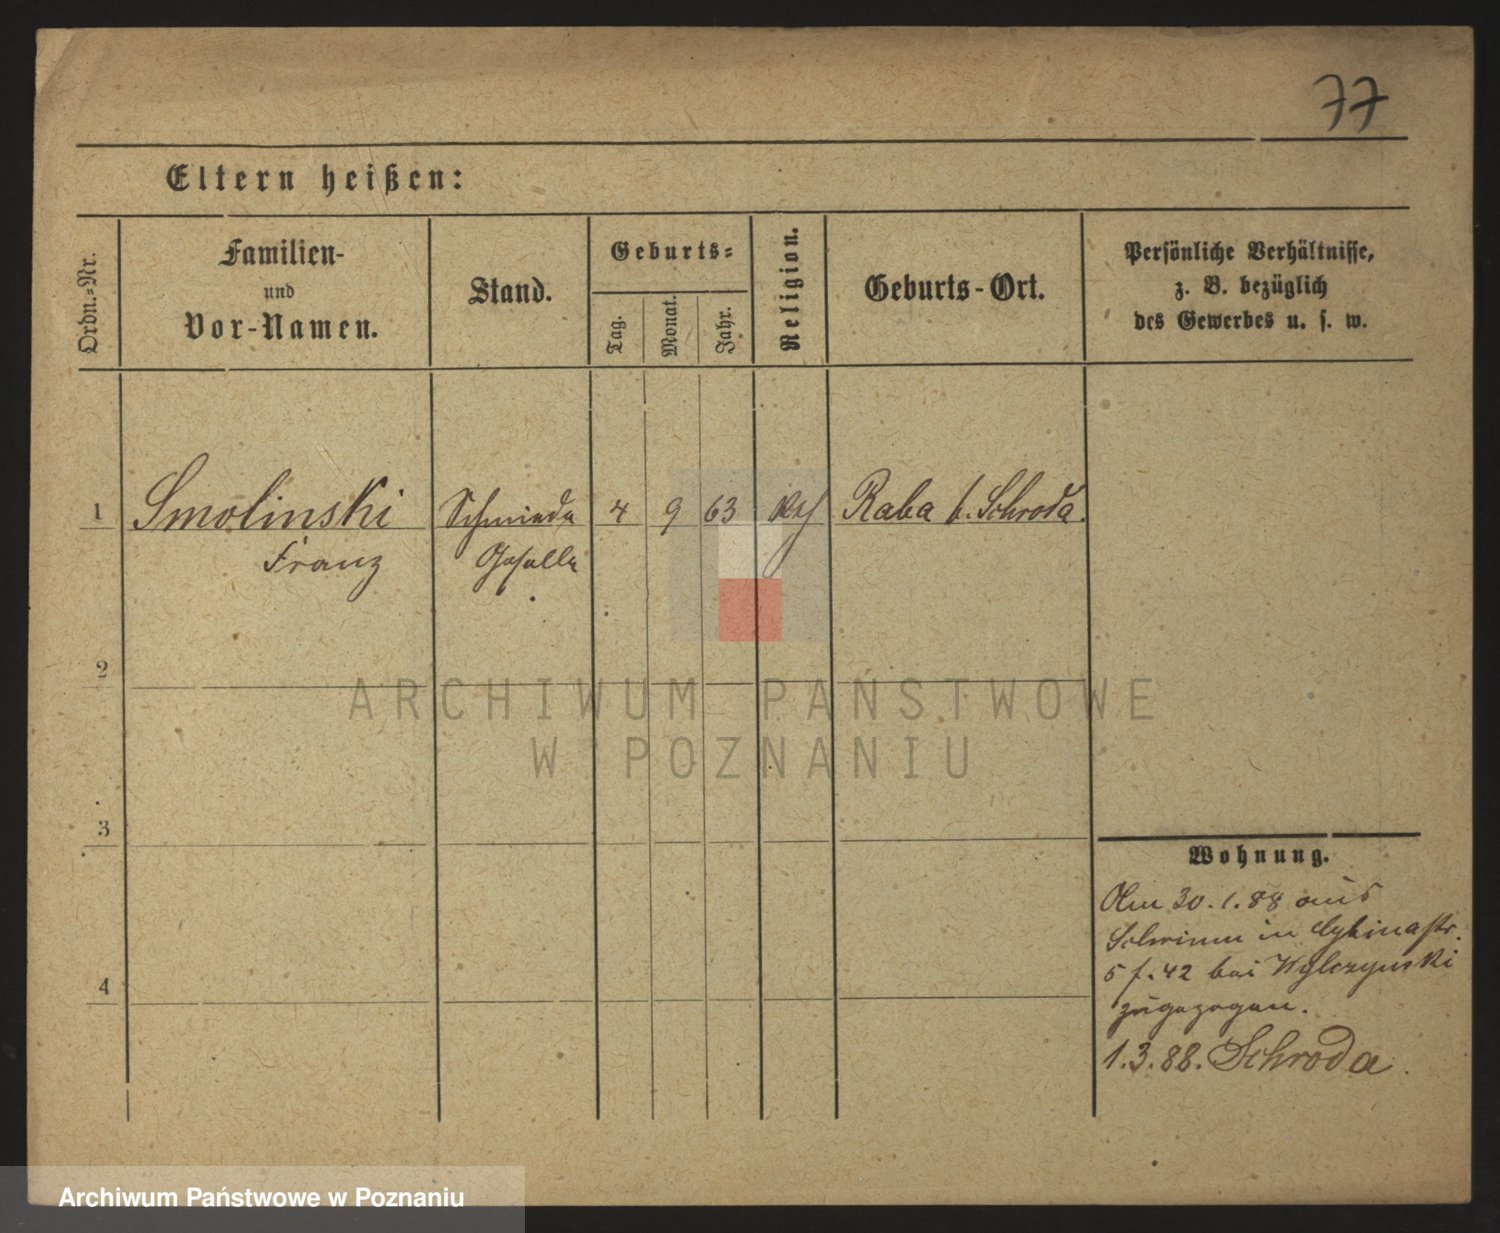 77
Eltern heißen:
Ordn.-Nr.
Familien-
und
Vor-Namen.
Stand.
Geburts-
Tag.
Monat.
Jahr.
Religion.
Geburts-Ort.
Persönliche Verhältnisse,
z. B. bezüglich
des Gewerbes u. s. w.
1 Smolinski Schmiede 4 9 63 kth Raba b. Schroda.
Franz Geselle
2
3
4
Wohnung.
Am 30.1.88 aus
Schrimm in Cybinastr.
5 f. 42 bei Wylczynski
zugezogen.
1.3.88. Schroda.
ARCHIWUM PAŃSTWOWE
W POZNANIU
Archiwum Państwowe w Poznaniu